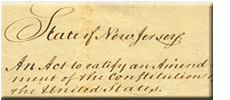 State of New Jersey.
An Act to ratify an Amend
ment of the Constitution
the United States.